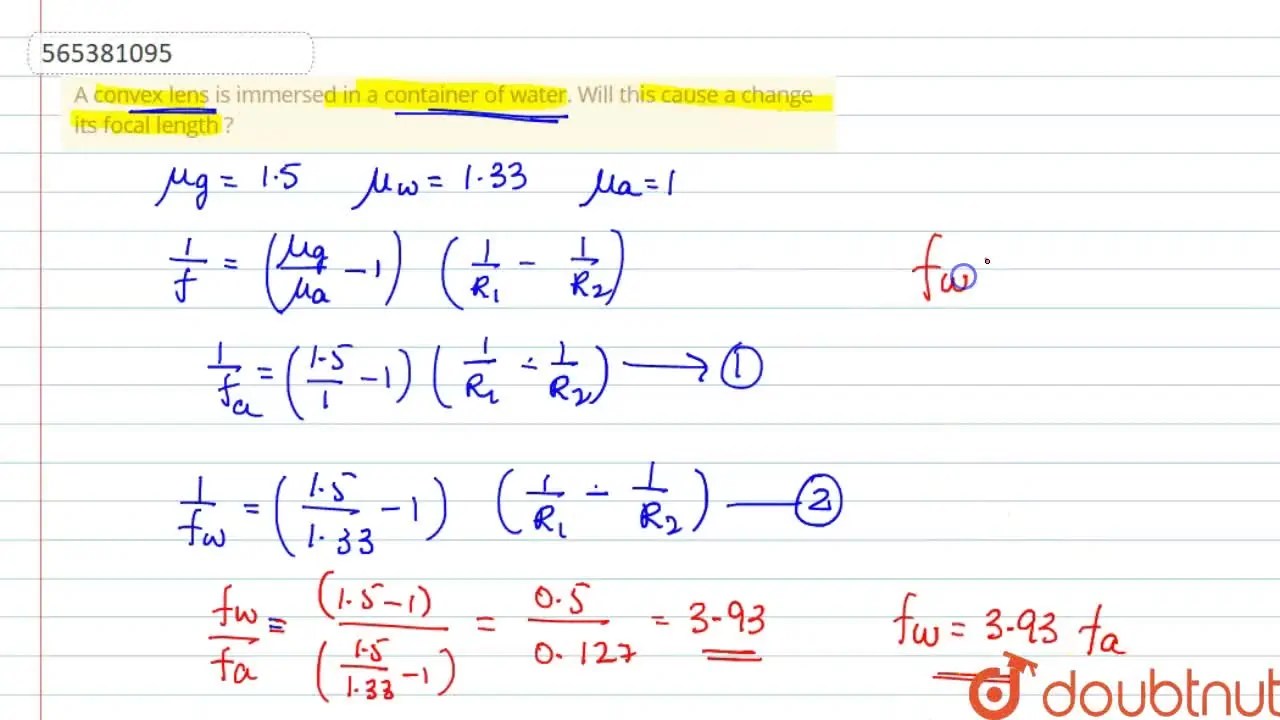 565381095
A convex lens is immersed in a container of water. Will this cause a change
its focal length ?
μg = 1.5 μw = 1.33 μa = 1
1/f = (μg/μa - 1) (1/R1 - 1/R2)
fw
1/fa = (1.5/1 - 1) (1/R1 - 1/R2) → 1
1/fw = (1.5/1.33 - 1) (1/R1 - 1/R2) — 2
fw/fa = (1.5-1)/(1.5/1.33 - 1) = 0.5/0.127 = 3.93 fw = 3.93 fa
doubtnut